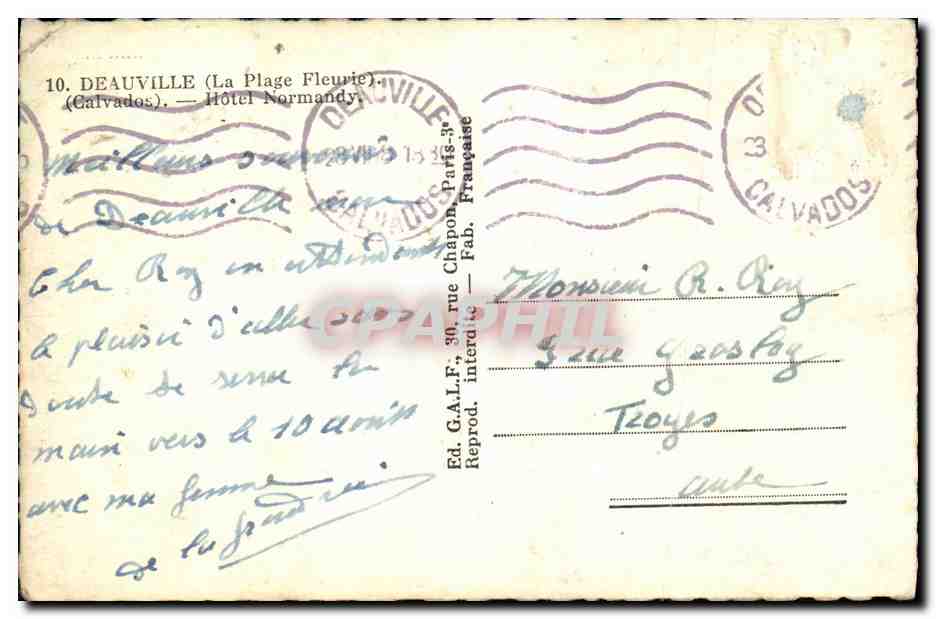 10. DEAUVILLE (La Plage Fleurie).
(Calvados). — Hôtel Normandy.
DEAUVILLE
18 30
CALVADOS
CALVADOS
Meilleurs souvenirs
de Deauville mon
Cher Roy en attendant
le plaisir d'aller sans
doute te serrer la
main vers le 10 Août
avec ma femme
de la
Ed. G.A.L.F., 30, rue Chapon, Paris-3e
Reprod. interdite — Fab. Française
CPAPHIL
Monsieur R. Roy
rue Grosley
Troyes
Aube